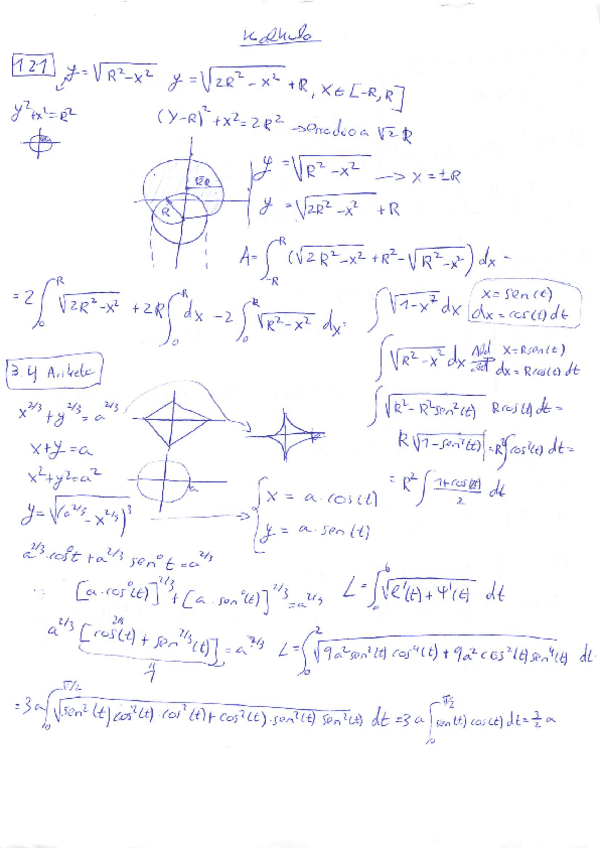 Kalkulo
121 y = √(R²-x²) y = √(2R²-x²) + R, x ∈ [-R, R]
y² + x² = R² (y-R)² + x² = 2R² → erradioa √2 R
y = √(R²-x²) → x = ±R
R
y = √(2R²-x²) + R
A = ∫_{-R}^{R} (√(2R²-x²) + R² - √(R²-x²)) dx =
= 2 ∫_0^R √(2R²-x²) + 2R ∫_0^R dx - 2 ∫_0^R √(R²-x²) dx =
∫ √(1-x²) dx x = sen(t)
dx = cos(t) dt
∫ √(R²-x²) dx x = R sen(t)
dx = R cos(t) dt
∫ √(R²-R² sen²(t)) R cos(t) dt =
R √(1-sen²(t)) = R² ∫ cos²(t) dt =
= R² ∫ (1+cos(t))/2 dt
3.4 Ariketa
x^{2/3} + y^{2/3} = a^{2/3}
x + y = a
x² + y² = a²
a
y = √(a^{2/3} - x^{2/3})³
x = a · cos(t)
y = a · sen(t)
a^{2/3} · cos t + a^{2/3} sen t = a^{2/3}
[a · cos(t)]^{2/3} + [a · sen(t)]^{2/3} = a^{2/3} L = ∫ √(φ'(t) + ψ'(t)) dt
a^{2/3} [cos^{2/3}(t) + sen^{2/3}(t)] = a^{2/3} L = ∫_0^2 √(9a² sen²(t) cos⁴(t) + 9a² cos²(t) sen⁴(t)) dt
1
= 3a ∫_0^{π/2} √(sen²(t) cos²(t) · cos²(t) + cos²(t) · sen²(t) sen²(t)) dt = 3a ∫_0^{π/2} sen(t) cos(t) dt = 3/2 a